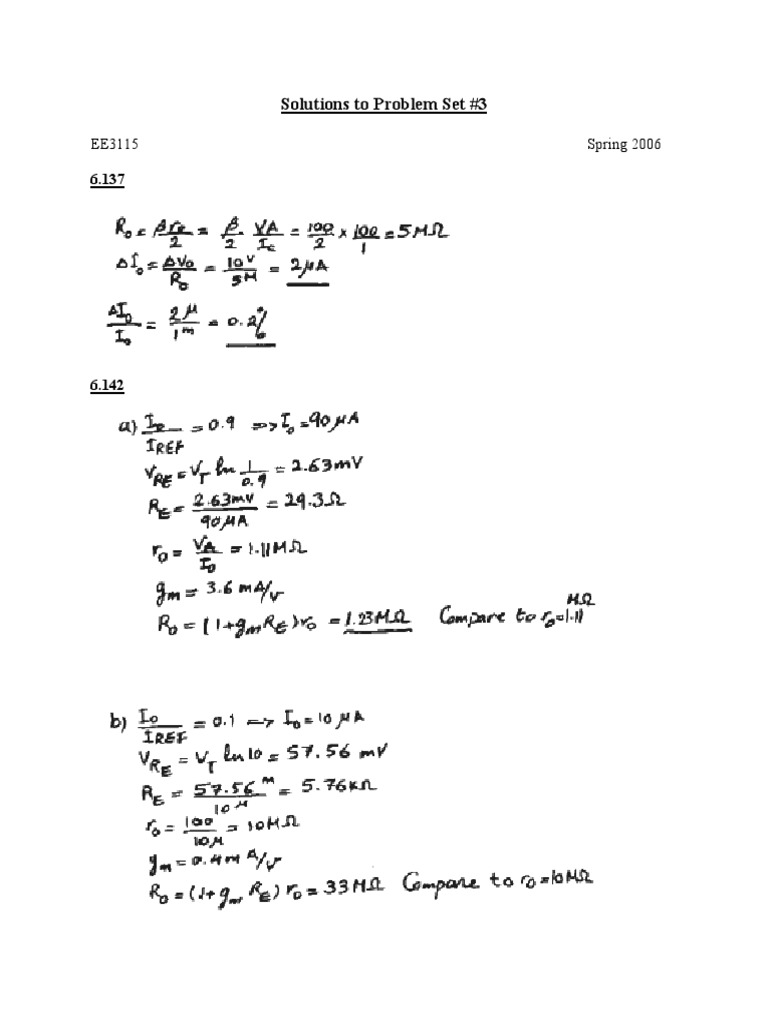 Solutions to Problem Set #3
EE3115 Spring 2006
6.137
R₀ = βr₀/2 = β/2 · VA/Ic = 100/2 × 100/1 = 5 MΩ
ΔI₀ = ΔV₀/R₀ = 10V/5M = 2μA
ΔI₀/I₀ = 2μ/1m = 0.2%
6.142
a) I₀/IREF = 0.9 => I₀ = 90 μA
V_RE = V_T ln 1/0.9 = 2.63mV
R_E = 2.63mV/90μA = 29.3Ω
r₀ = VA/I₀ = 1.11MΩ
gm = 3.6 mA/V
R₀ = (1+gmR_E)r₀ = 1.23MΩ Compare to r₀=1.11 MΩ
b) I₀/IREF = 0.1 => I₀ = 10 μA
V_RE = V_T ln10 = 57.56 mV
R_E = 57.56m/10μ = 5.76KΩ
r₀ = 100/10μ = 10MΩ
gm = 0.4m A/V
R₀ = (1+gm R_E) r₀ = 33MΩ Compare to r₀=10MΩ